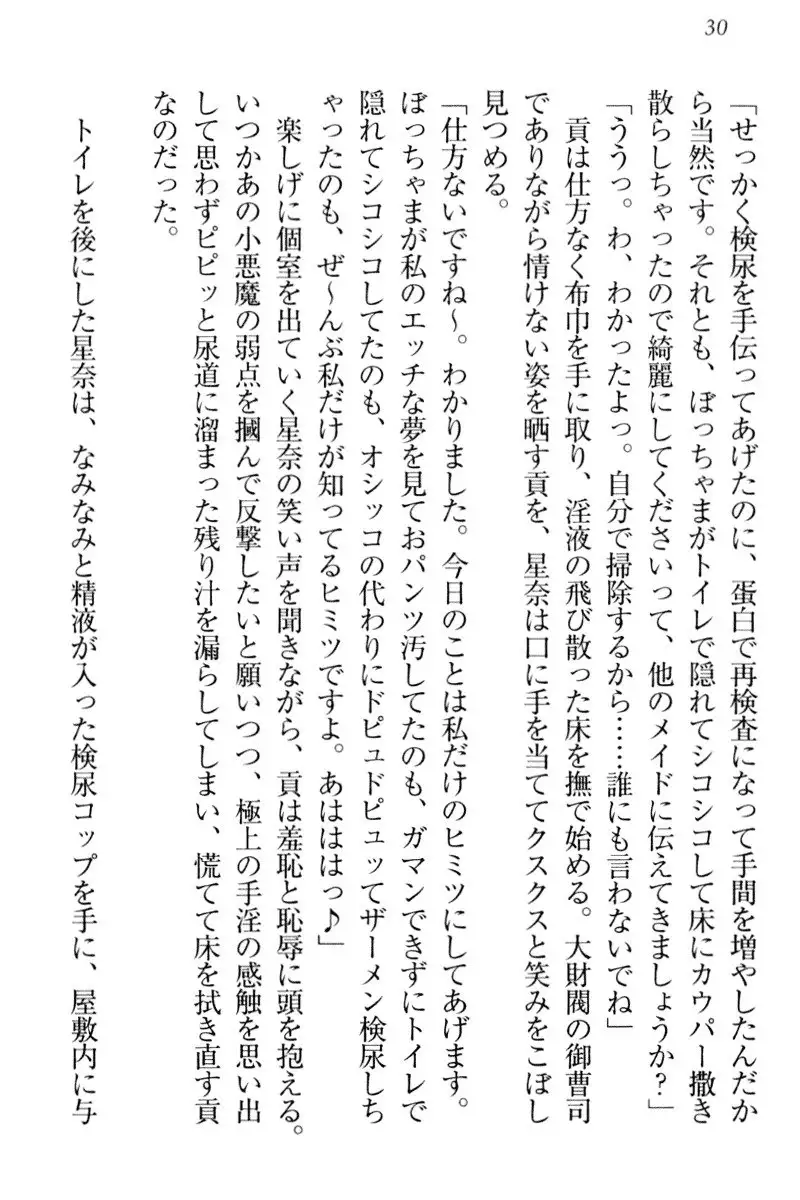 30
「せっかく検尿を手伝ってあげたのに、蛋白で再検査になって手間を増やしたんだか
ら当然です。それとも、ぼっちゃまがトイレで隠れてシコシコして床にカウパー撒き
散らしちゃったので綺麗にしてくださいって、他のメイドに伝えてきましょうか？」
「ううっ。わ、わかったよっ。自分で掃除するから……誰にも言わないでね」
貢は仕方なく布巾を手に取り、淫液の飛び散った床を撫で始める。大財閥の御曹司
でありながら情けない姿を晒す貢を、星奈は口に手を当ててクスクスと笑みをこぼし
見つめる。
「仕方ないですね～。わかりました。今日のことは私だけのヒミツにしてあげます。
ぼっちゃまが私のエッチな夢を見ておパンツ汚してたのも、ガマンできずにトイレで
隠れてシコシコしてたのも、オシッコの代わりにドピュドピュッてザーメン検尿しち
ゃったのも、ぜ～んぶ私だけが知ってるヒミツですよ。あはははっ♪」
楽しげに個室を出ていく星奈の笑い声を聞きながら、貢は羞恥と恥辱に頭を抱える。
いつかあの小悪魔の弱点を摑んで反撃したいと願いつつ、極上の手淫の感触を思い出
して思わずピピッと尿道に溜まった残り汁を漏らしてしまい、慌てて床を拭き直す貢
なのだった。
トイレを後にした星奈は、なみなみと精液が入った検尿コップを手に、屋敷内に与